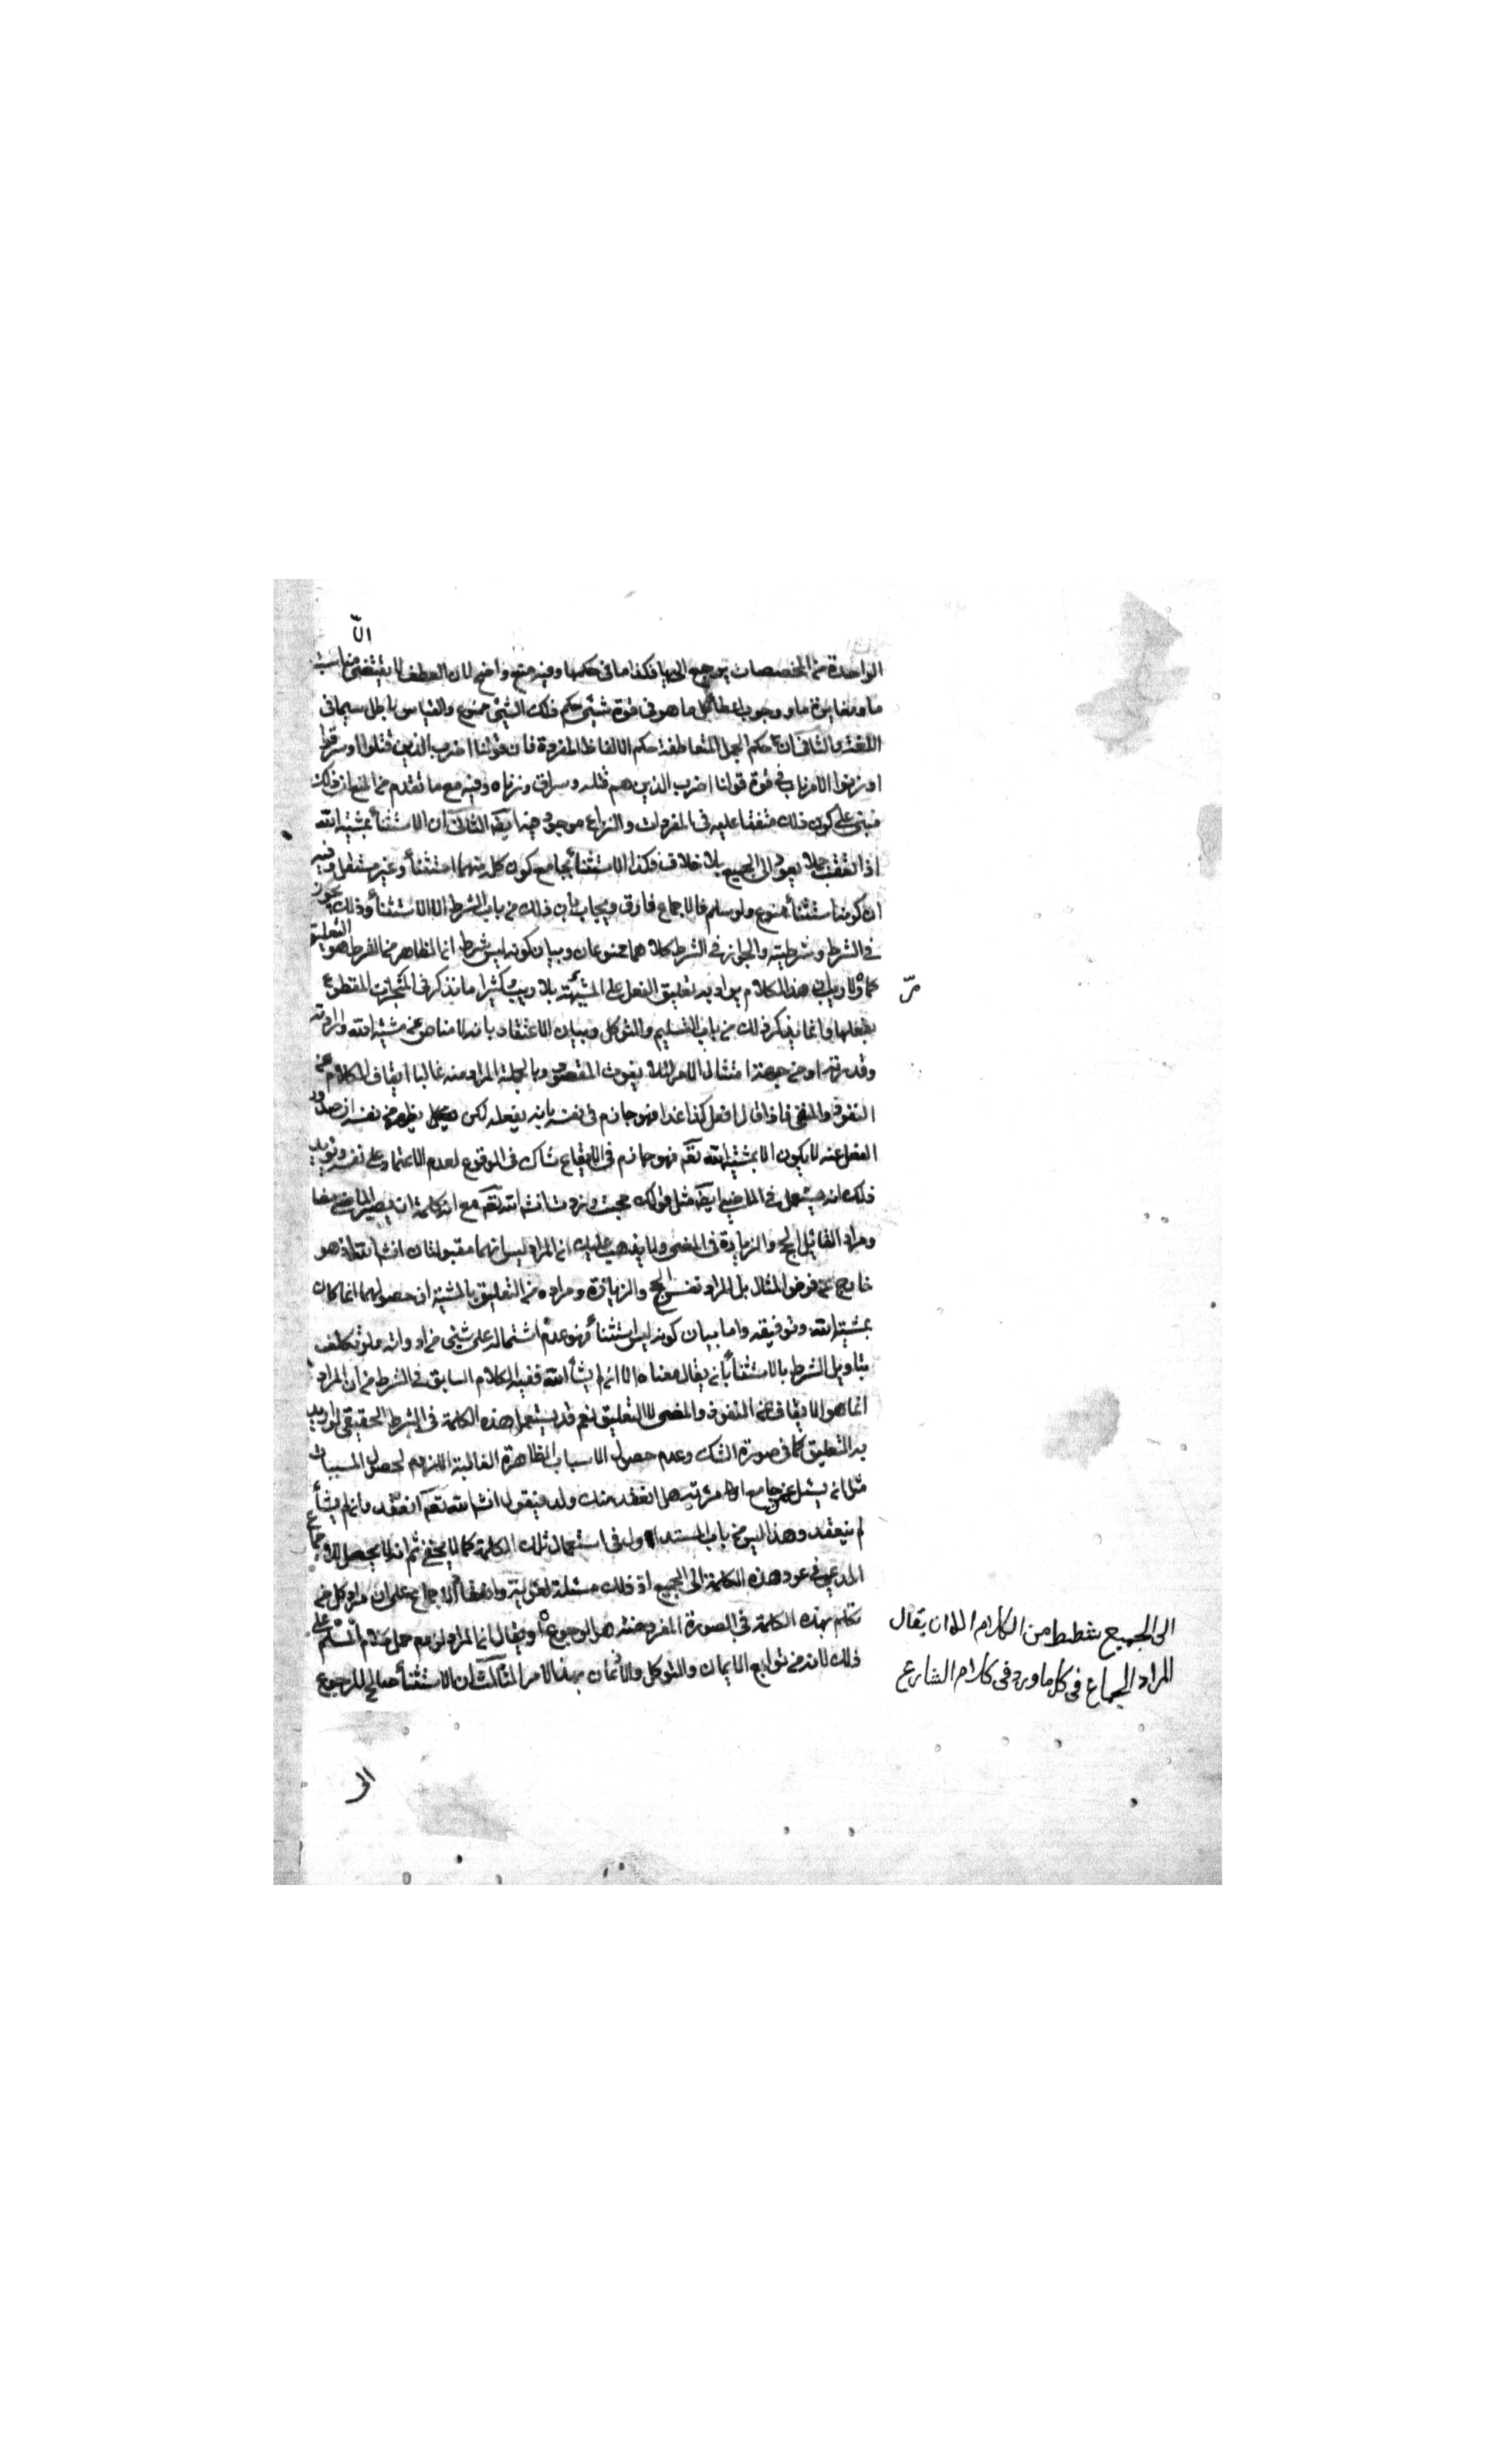 الّا
الواحدة من المخصصات يرجع اليها فكذا ما في حكمها وفيه منع واضح لان العطف لا يقتضي مناسبة
ما ومغايرة ما ووجوب اعطاء كل ما هو في قوة شيئ حكم ذلك الشيئ ممنوع والقياس باطل سيما في
اللغة والثاني ان حكم الجمل المتعاطفة حكم الالفاظ المفردة فان قولنا اضرب الذين قتلوا وسرقوا
او زنوا الا من تاب في قوة قولنا اضرب الذين هم قتلة وسراق وزناة وفيه مع ما تقدم من المنع ان ذلك
مبني على كون ذلك متفقا عليه في المفردات والنزاع موجود فيها ايضه الثالث ان الاستثنأ بمشية الله
اذا تعقب جملا يعود الى الجميع بلا خلاف فكذا الاستثنأ بجامع كون كل منهما استثنأ وغير مستقل وفيه
ان كونه استثنأ ممنوع ولو سلم فالاجماع فارق ويجاب بان ذلك من باب الشرط لا الاستثنأ وذلك يجوز
في الشرط وشرطيته والجواز في الشرط كلاهما ممنوعان وبيان كونه ليس شرط ان الظاهر من الشرط هو التعليق
كما مرّ ولا ريب ان هذا الكلام يراد به تعليق الفعل على المشيئة بلا ريب وكثيرا ما يذكر في المنجزات المقطوع
بفعلها وانما يذكر ذلك من باب التسليم والتوكل وبيان الاعتقاد بانه لا مناص عن مشية الله وارادته
وقدرته او من جهة امتثال الامر لئلا يفوت المقصود وبالجملة المراد منه غالبا ايقاف الكلام عن
النفوذ والمضي فاذا قال افعل كذا غدا فهو جازم في نفسه بانه يفعله لكن يظهر من نفسه ان صدور
الفعل عنه لا يكون الا بمشية الله تعه فهو جازم في الايقاع شاك في الوقوع لعدم الاعتماد على نفسه ويؤيد
ذلك انه يستعمل في الماضي ايضه مثل قولك حججت وزرت انشاء الله تعه مع ان كلمة ان يصير الماضي مضا
ومراد القائل الحج والزيارة في المضي ولا يذهب عليك ان المراد ليس انهما مقبولتان انشاء الله اذ هو
خارج عن فرض المثال بل المراد نفس الحج والزيارة ومراده من التعليق بالمشية ان حصولهما انما كان
بمشية الله وتوفيقه واما بيان كونه ليس استثنأ فهو عدم اشتماله على شيئ من ادواته ولو تكلف
بتاويل الشرط بالاستثنأ بان يقال معناه الا ان لم يشأ الله ففيه الكلام السابق في الشرط من ان المراد
انما هو الايقاف عن النفوذ والمضي لا التعليق نعم قد يستعمل هذه الكلمة في الشرط الحقيقي لو اريد
به التعليق كما في صورة الشك وعدم حصول الاسباب الظاهرة الغالبة اللزوم لحصول المسببات
مثل ان يسئل عن جامع امرئته هل انعقد منك ولد فيقول انشاء الله تعه انعقد وان لم يشأ
لم ينعقد وهذا ليس من باب المتداول في استعمال تلك الكلمة كما لا يخفى ثم انه لا يحصل للاجماع
المدعى في عود هذه الكلمة الى الجميع اذ ذلك مسئلة لغوية وادعاء الاجماع على ان مراد كل من
تكلم بهذه الكلمة في الصورة المفروضة هو الرجوع او يقال ان المراد لزوم حمل كلام المسلم على
ذلك لانه من توابع الايمان والتوكل والاذعان بهذا الامر الثالث ان الاستثنأ صالح للرجوع
مرّ
الى الجميع شطط من الكلام الا ان يقال
المراد الاجماع في كل ما ورد في كلام الشارع
الى